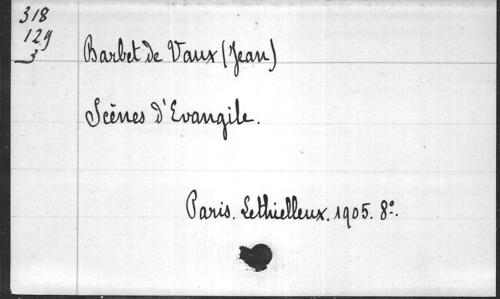 318
129
3
Barbet de Vaux (Jean)
Scènes d'Evangile.
Paris. Lethielleux. 1905. 8°.